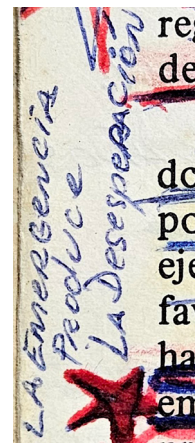 LA EMERGENCIA
Produce
LA Desesperación
reg
de
do
po
eje
fav
ha
en